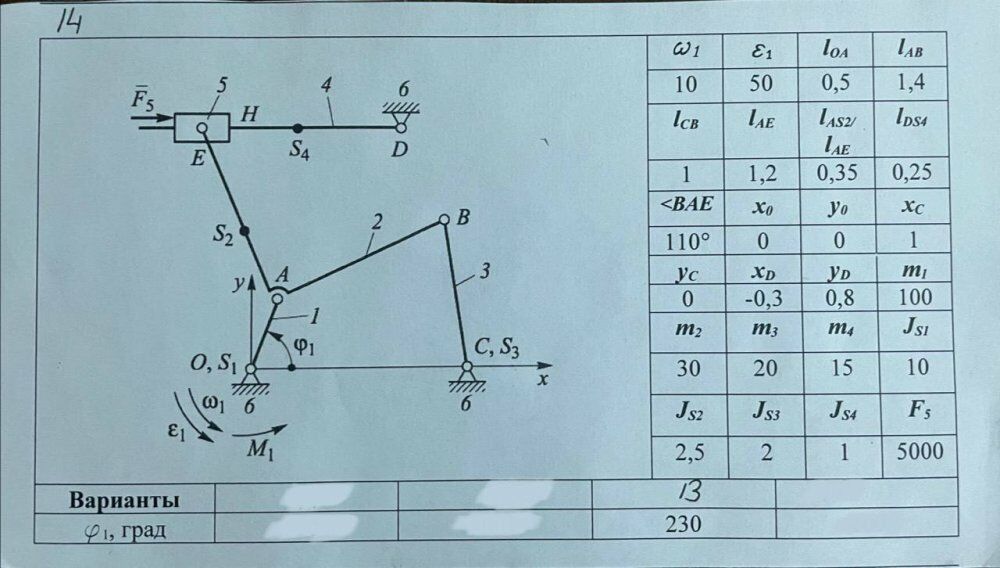 14
F̄5
5
H
4
6
E
S4
D
S2
2
B
3
A
y
1
φ1
O, S1
C, S3
x
6
6
ω1
ε1
M1
ω1 ε1 lOA lAB
10 50 0,5 1,4
lCB lAE lAS2/ lAE lDS4
1 1,2 0,35 0,25
<BAE x0 y0 xC
110° 0 0 1
yC xD yD m1
0 -0,3 0,8 100
m2 m3 m4 JS1
30 20 15 10
JS2 JS3 JS4 F5
2,5 2 1 5000
Варианты 13
φ1, град 230